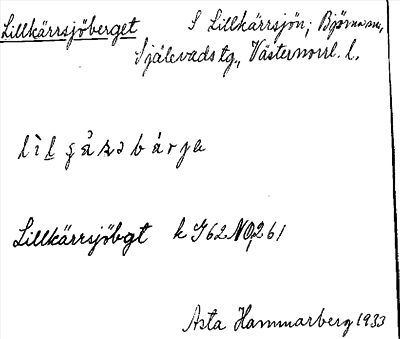 Lillkärrsjöberget S Lillkärrsjön; Björna sn,
Själevads tg., Västernorrl. l.
Lillkärrsjöbgt k G62NO,261
Asta Hammarberg 1933